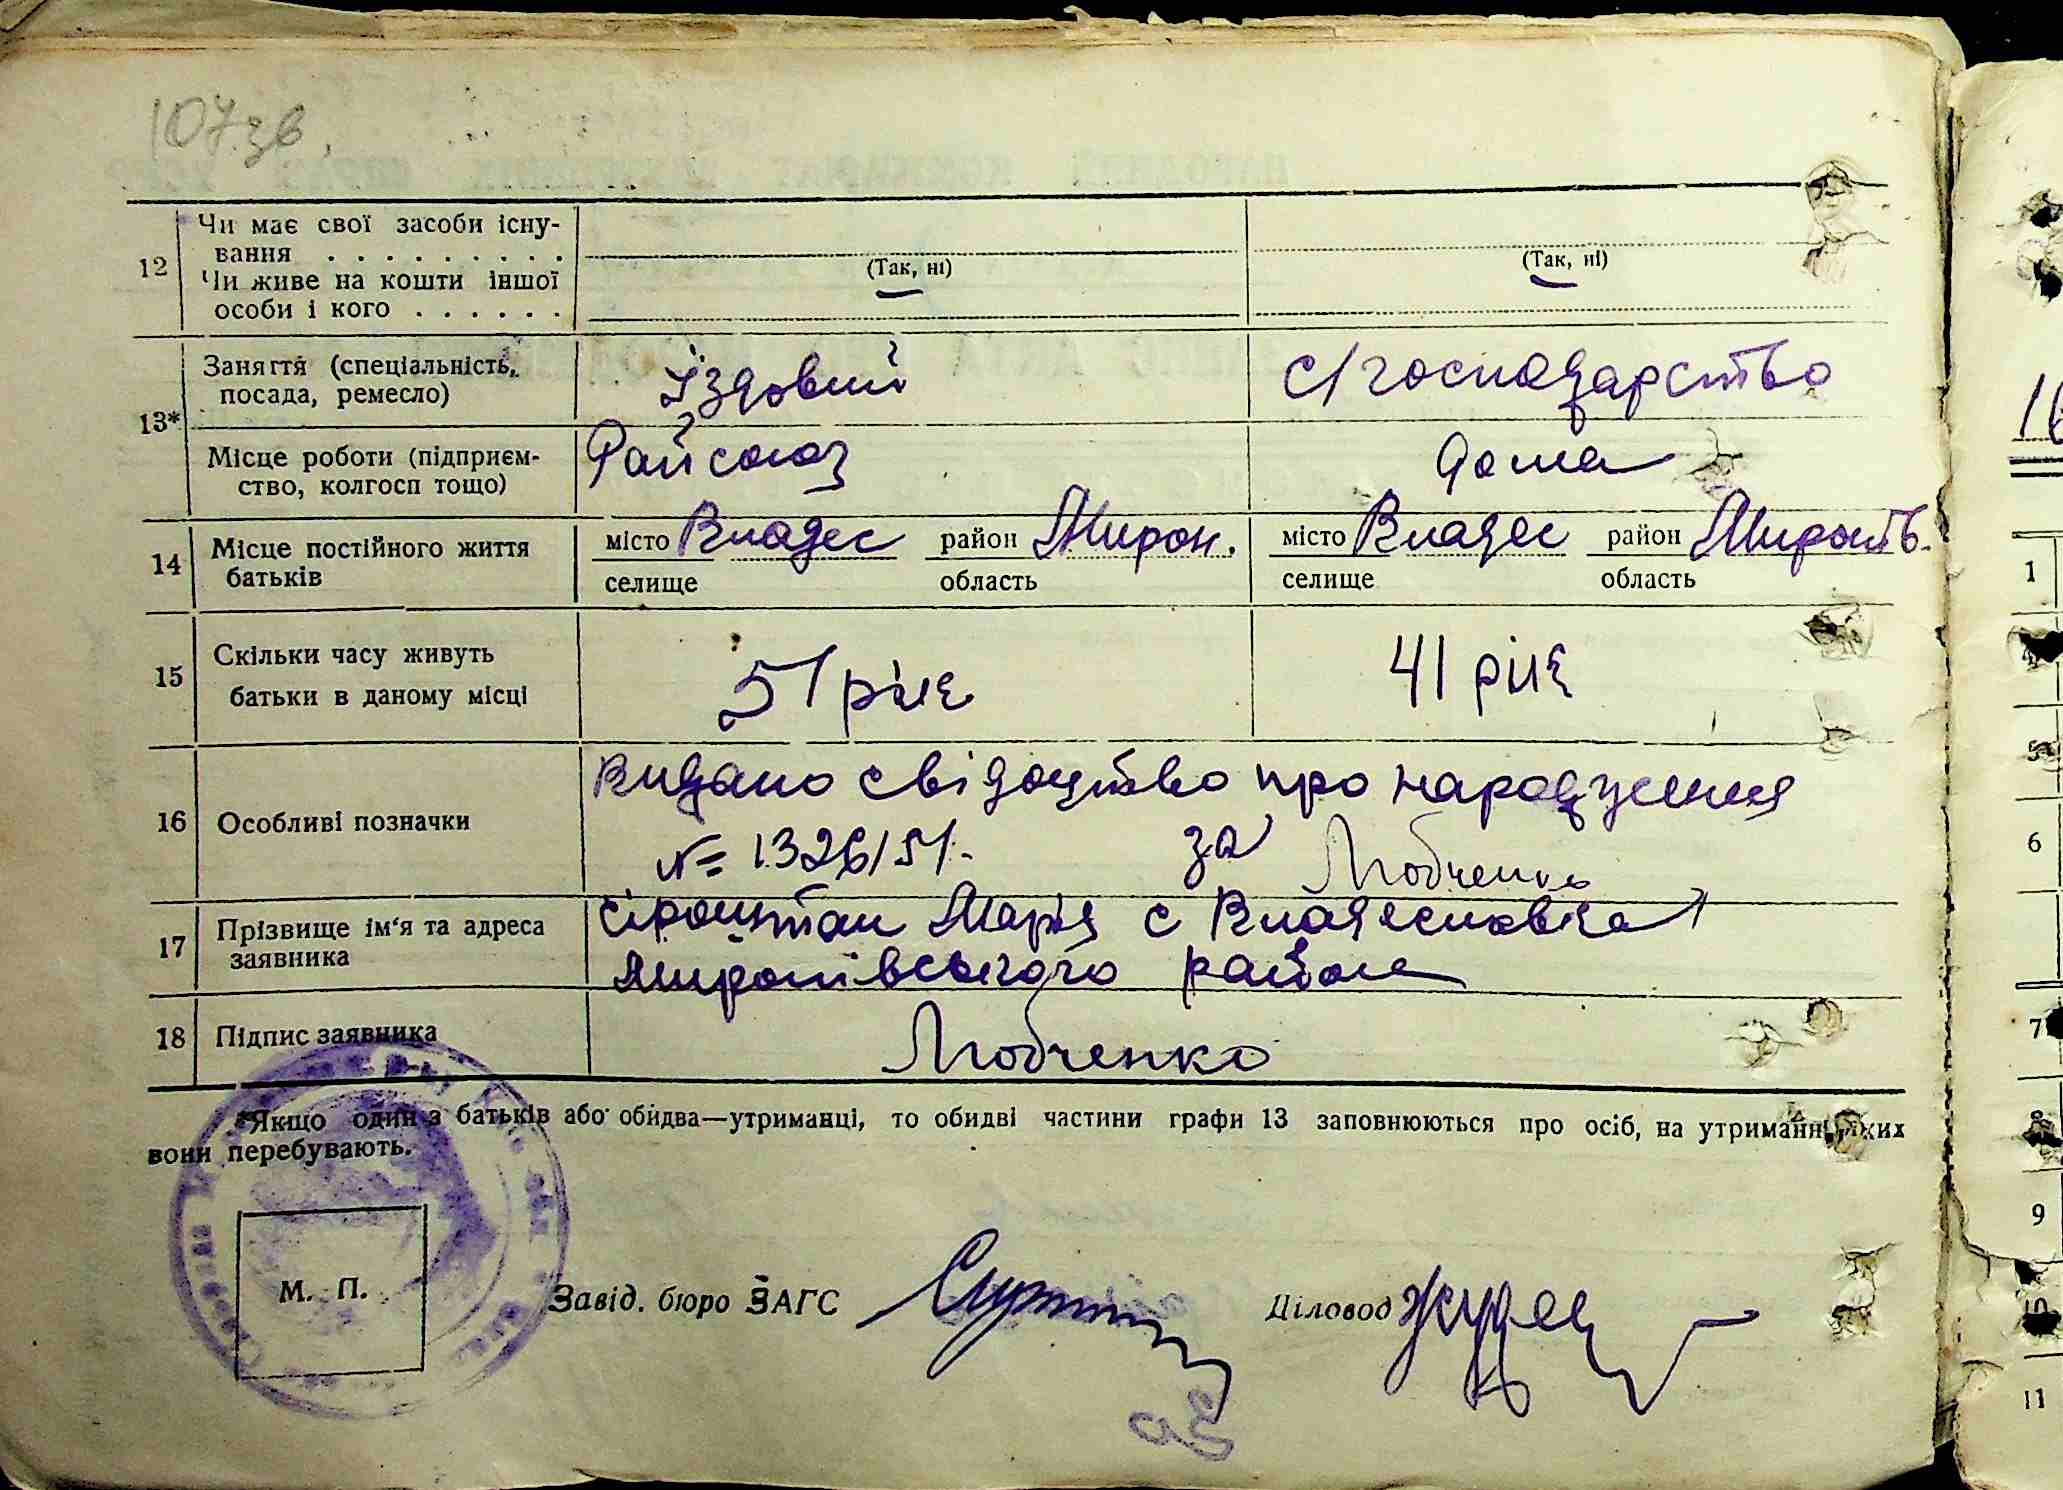 107 зв.
12 Чи має свої засоби існу-
вання . . . . . . . . .
(Так, ні) (Так, ні)
Чи живе на кошти іншої
особи і кого . . . . . .
13* Заняття (спеціальність, посада, ремесло) Їздовий с/господарство
Місце роботи (підприєм-
ство, колгосп тощо) Райсоюз дома
14 Місце постійного життя батьків місто Владес район Мирон. місто Владес район Миронів.
селище область селище область
15 Скільки часу живуть
батьки в даному місці 51 рік 41 рік
16 Особливі позначки Видано свідоцтво про народження
№ 1326/51. за Любченко
17 Прізвище ім'я та адреса
заявника Марія с Владеславка
Миронівського района
18 Підпис заявника Любченко
*Якщо один з батьків або обидва—утриманці, то обидві частини графи 13 заповнюються про осіб, на утриманні яких
вони перебувають.
М. П.
Завід. бюро ЗАГС Діловод
1
5
6
7
8
9
10
11